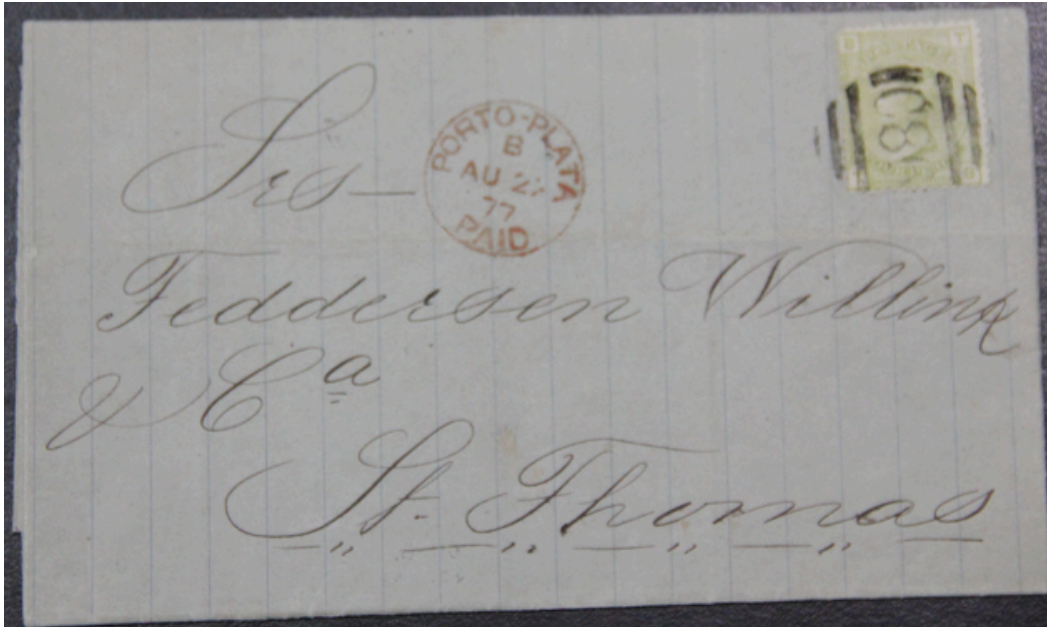 Srs—
PORTO-PLATA
B
AU 2
77
PAID
C86
Feddersen Willink
& Cª
St. Thomas